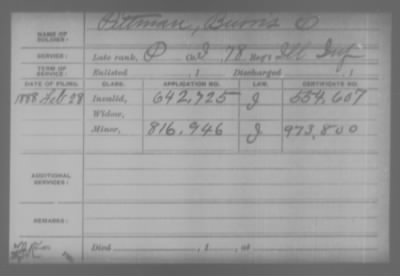 NAME OF SOLDIER: Pittman, Burns O
SERVICE: Late rank, P Co. I, 78 Reg't Ill Inf
TERM OF SERVICE: Enlisted , 1 Discharged , 1
DATE OF FILING. CLASS. APPLICATION NO. LAW. CERTIFICATE NO.
1888 Feb 28 Invalid, 642,725 J 554,607
Widow,
Minor, 816,946 J 973,800
ADDITIONAL SERVICES:
REMARKS:
Died , 1 , at